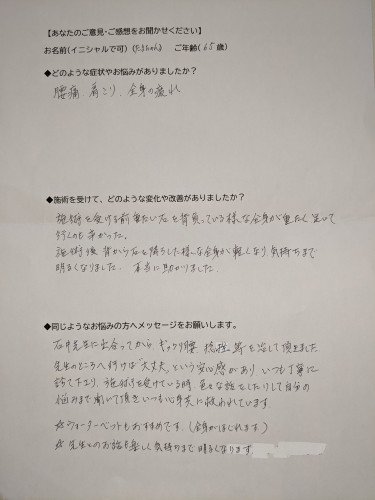 【あなたのご意見・ご感想をお聞かせください】
お名前(イニシャルで可) ( ) ご年齢( 65 歳)
◆どのような症状やお悩みがありましたか？
腰痛 肩こり、全身の疲れ
◆施術を受けて、どのような変化や改善がありましたか？
施術を受ける前重たい石を背負っている様な全身が重たく歩いて
行くのも辛かった。
施術後 背から石を降ろした様な全身が軽くなり気持ちまで
明るくなりました。本当に助かりました。
◆同じようなお悩みの方へメッセージをお願いします。
先生に出会ってから ギックリ腰 捻挫 等を治して頂きました。
先生のところへ行けば"大丈夫"という安心感があり いつも丁寧に
診て下さり 施術を受けている時 色々な話をしたりして自分の
悩みまで聞いて頂きいつも心身共に救われています。
☆ウォーターベットもおすすめです。(全身がほぐれます。)
☆先生とのお話も楽しく気持ちまで明るくなります。